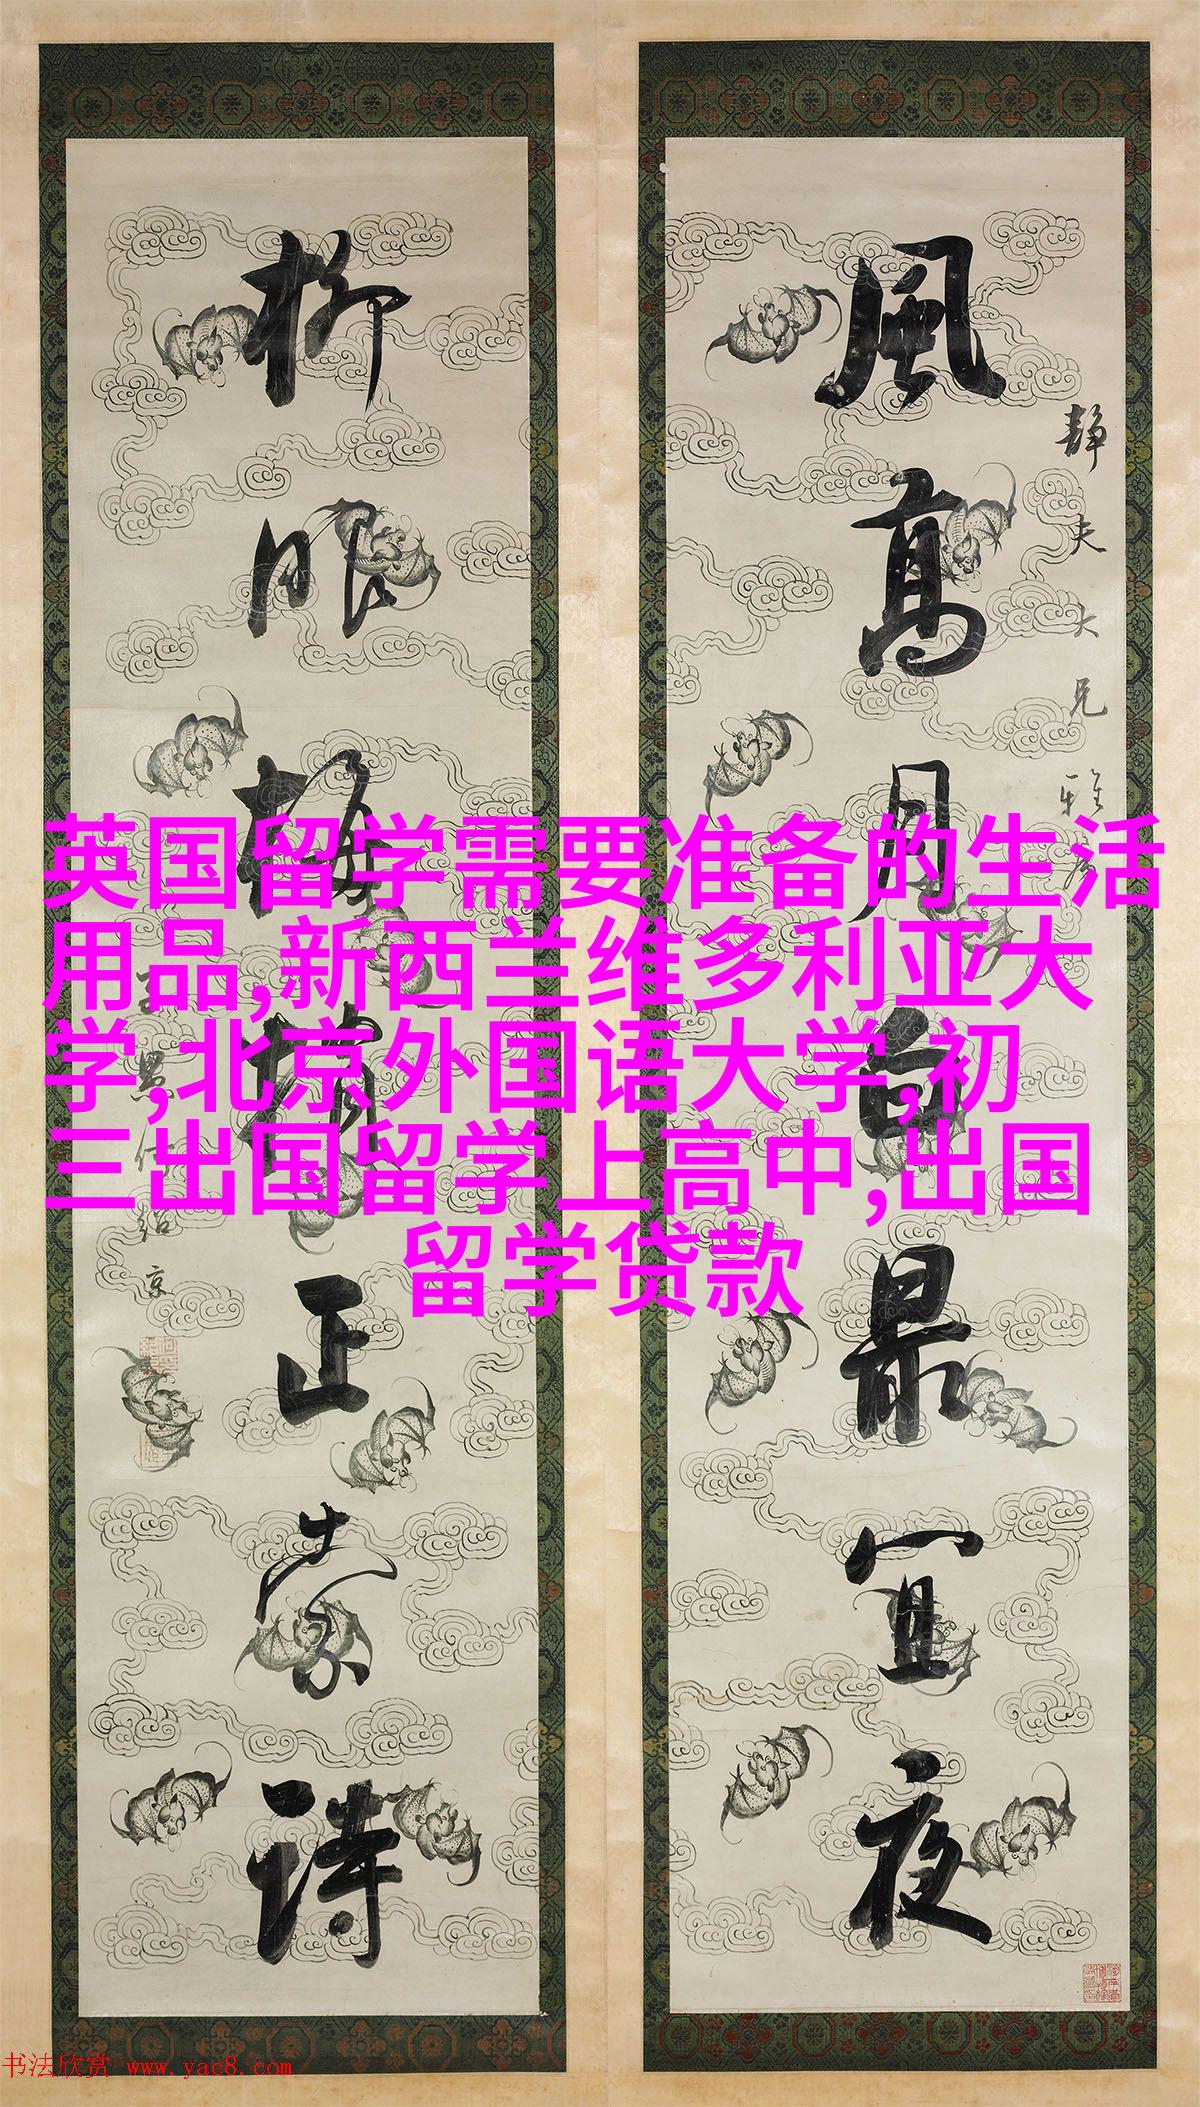 風高月白最宜夜
静夫大兄雅
柳眼梅情正索詩
英国留学需要准备的生活
用品,新西兰维多利亚大
学,北京外国语大学,初
三出国留学上高中,出国
留学贷款
书法欣赏 www.yac8.com